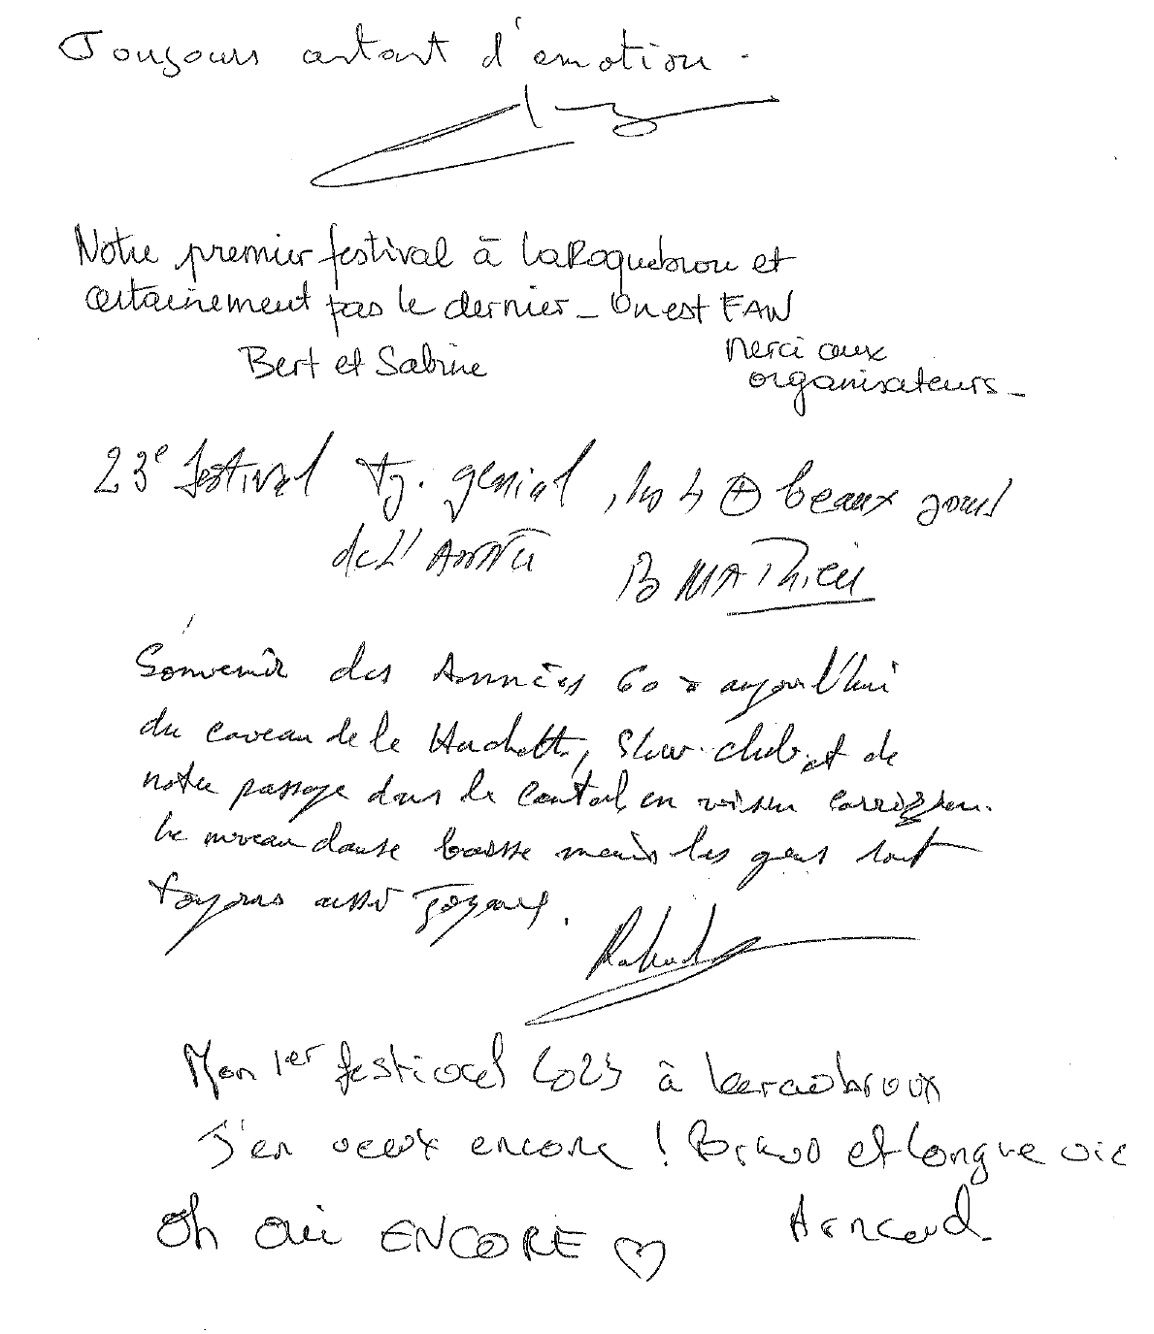 Toujours autant d'émotion.
Notre premier festival à LaRoquebrou et
certainement pas le dernier_ On est FAN
Bert et Sabrine
Merci aux
organisateurs_
23e festival tj. génial, les 4 ⊕ beaux jours
de L'ANNÉE
B MAThieu
Souvenir des Années 60 à aujourd'hui
du caveau de la Huchette, Slow-club et de
notre passage dans le Cantal en
Le niveau danse baisse mais les gens sont
toujours aussi joyeux.
Mon 1er festival 2023 à
J'en veux encore ! Bravo et longue vie
Arnaud.
Oh oui ENCORE ♡